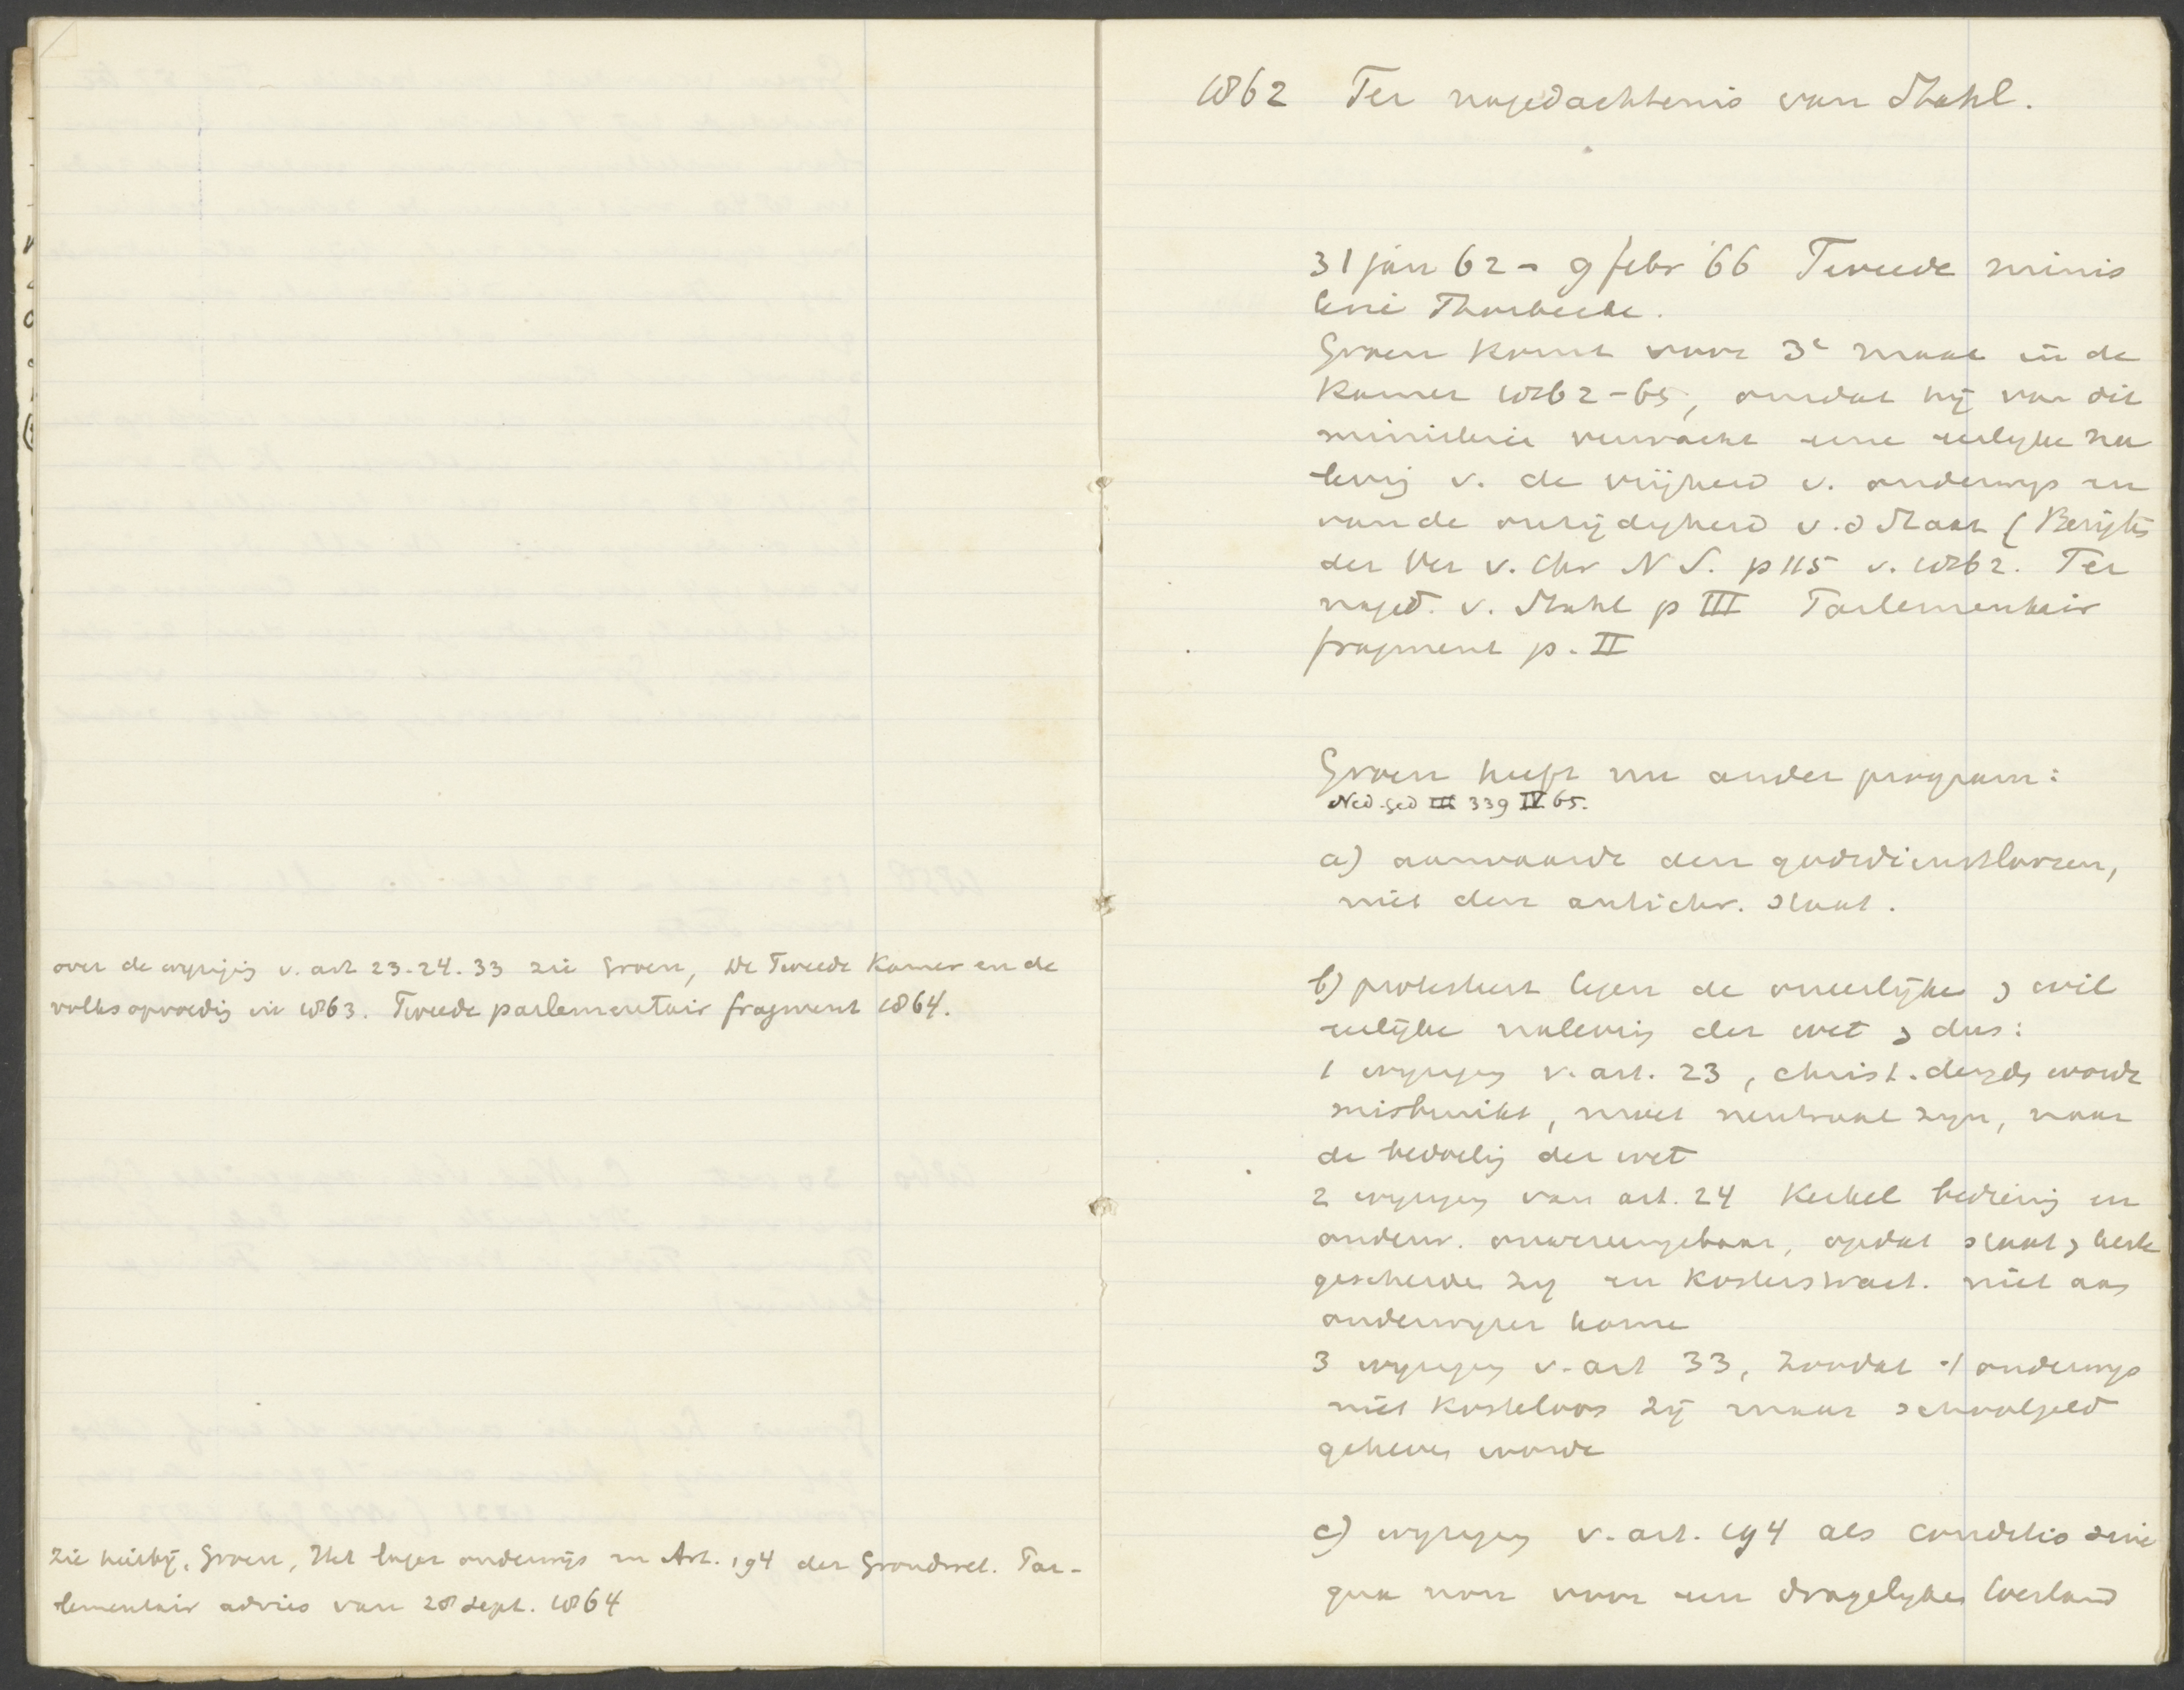 over de wyziging v. art 23-24-33 zie Groen, De Tweede Kamer en de
volksopvoeding in 1863. Tweede parlementair fragment 1864.
zie hierbij, Groen, Het lager onderwijs en Art. 194 der Grondwet. Par-
lementair advies van 28 Sept. 1864
1862 Ter nagedachtenis van Stahl.
31 jan 62 - 9 febr '66 Tweede minis
terie Thorbecke.
Groen komt voor 3e maal in de
Kamer 1862-65, omdat hij van dit
ministerie verwacht eene eerlyke na
leving v. de vrijheid v. onderwys en
van de onzijdigheid v.d Staat (Berigten
der Ver v. Chr N S. p 115 v. 1862. Ter
naged. v. Stahl p III Parlementair
fragment p. II
Groen heeft nu ander program:
Ned. Ged III 339 IV 65.
a) aanvaarde den godsdienstloozen,
niet den antichr. staat.
b) protesteert tegen de oneerlijke, wil
eerlijke naleving der wet, dus:
1 wyziging v. art. 23, christ. deugden wordt
misbruikt, moet neutraal zyn, naar
de bedoeling der wet
2 wyziging van art. 24 Kerkel bediening en
onderw. onvereenigbaar, opdat staat, kerk
gescheiden zy en kosters tract. niet aan
onderwyzer kome
3 wyziging v. art 33, zoodat 't onderwys
niet kosteloos zij maar schoolgeld
geheven worde
c) wyziging v. art. 194 als conditio sine
qua non voor een dragelyken toestand